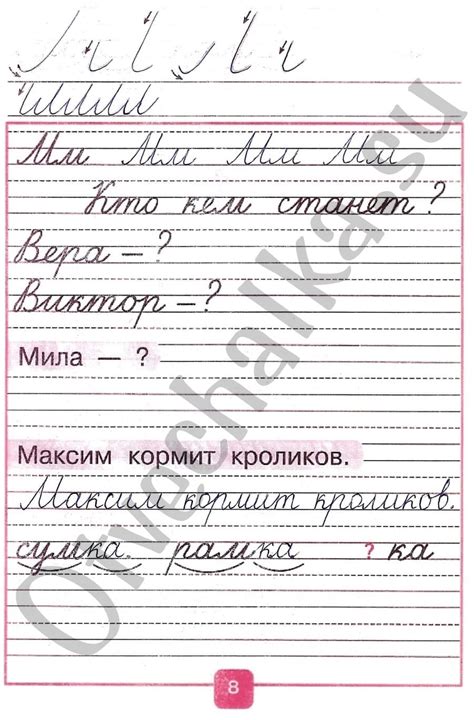 Мм Мм Мм Мм
Кто кем станет?
Вера – ?
Виктор – ?
Мила — ?
Максим кормит кроликов.
Максим кормит кроликов.
сумка. рамка ? ка
8
Otvechalka.su